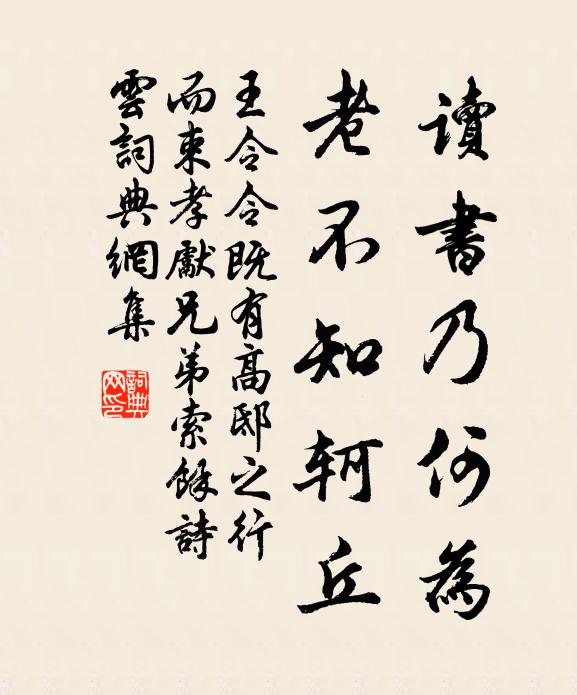 讀書乃何為
老不知軻丘
王令令既有高邸之行
而束孝獻兄弟索餘詩
雲詞典網集
詞典
网印